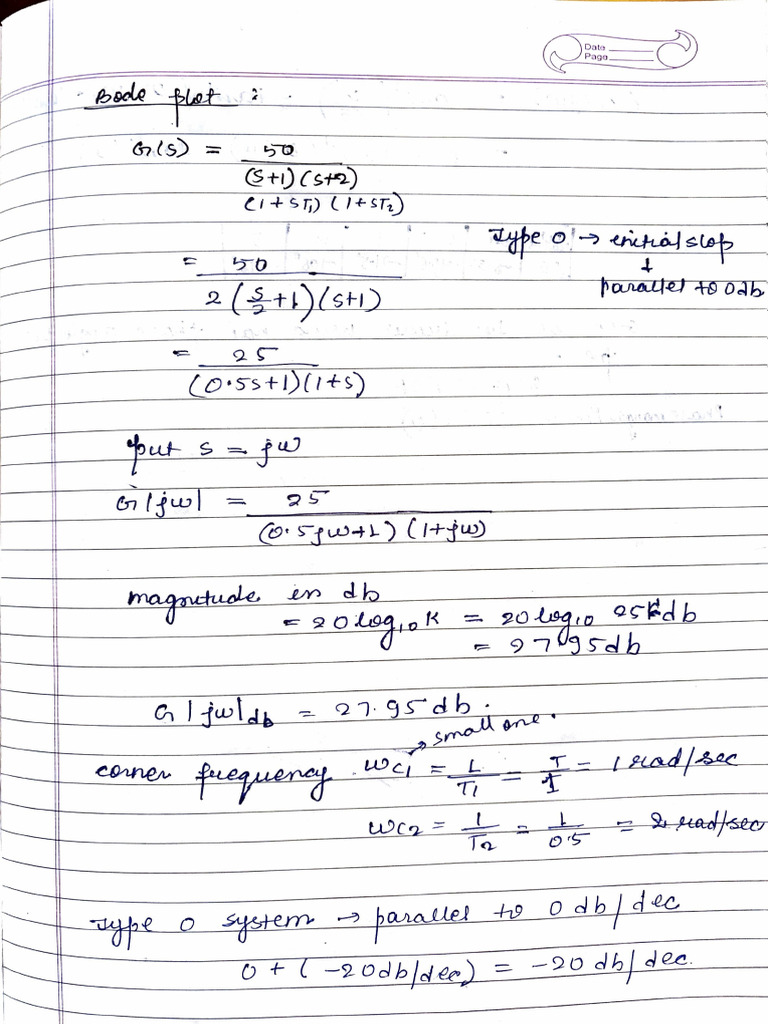 Date
Page
Bode plot :
G(s) = 50
(s+1) (s+2)
(1 + ST1) (1 + ST2)
Type 0 → initial slop
↓
parallel to 0db
= 50
2 (s/2 + 1) (s+1)
= 25
(0.5s+1) (1+s)
put s = jw
G|jw| = 25
(0.5jw+1) (1+jw)
magnitude in db
= 20 log10 K = 20 log10 25 db
= 27.95db
G|jw|db = 27.95 db.
small one.
corner frequency wc1 = 1/T1 = 1/1 = 1 rad/sec
wc2 = 1/T2 = 1/0.5 = 2 rad/sec
Type 0 system → parallel to 0 db/dec
0 + (-20db/dec) = -20 db/dec.